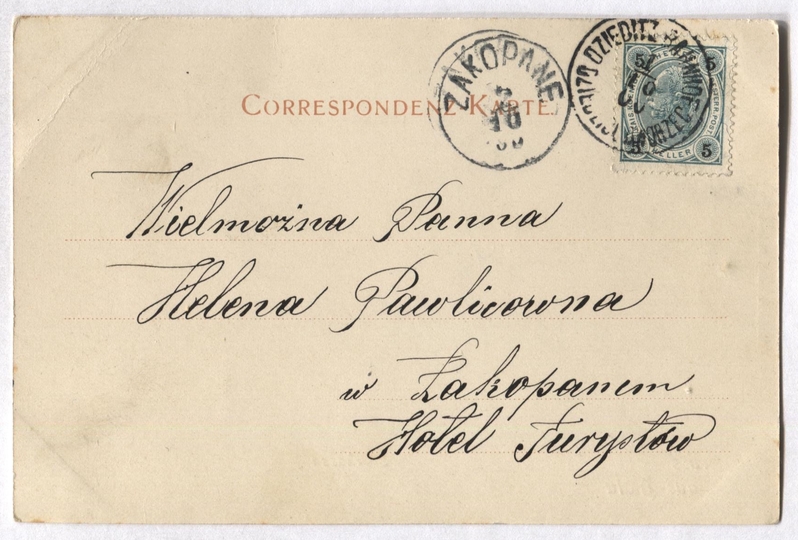 CORRESPONDENZ-KARTE.
ZAKOPANE
10
DZIEDITZ BAHNHOF
5 5
HELLER
Wielmożna Panna
Helena Pawlicowna
w Zakopanem
Hotel Turystów